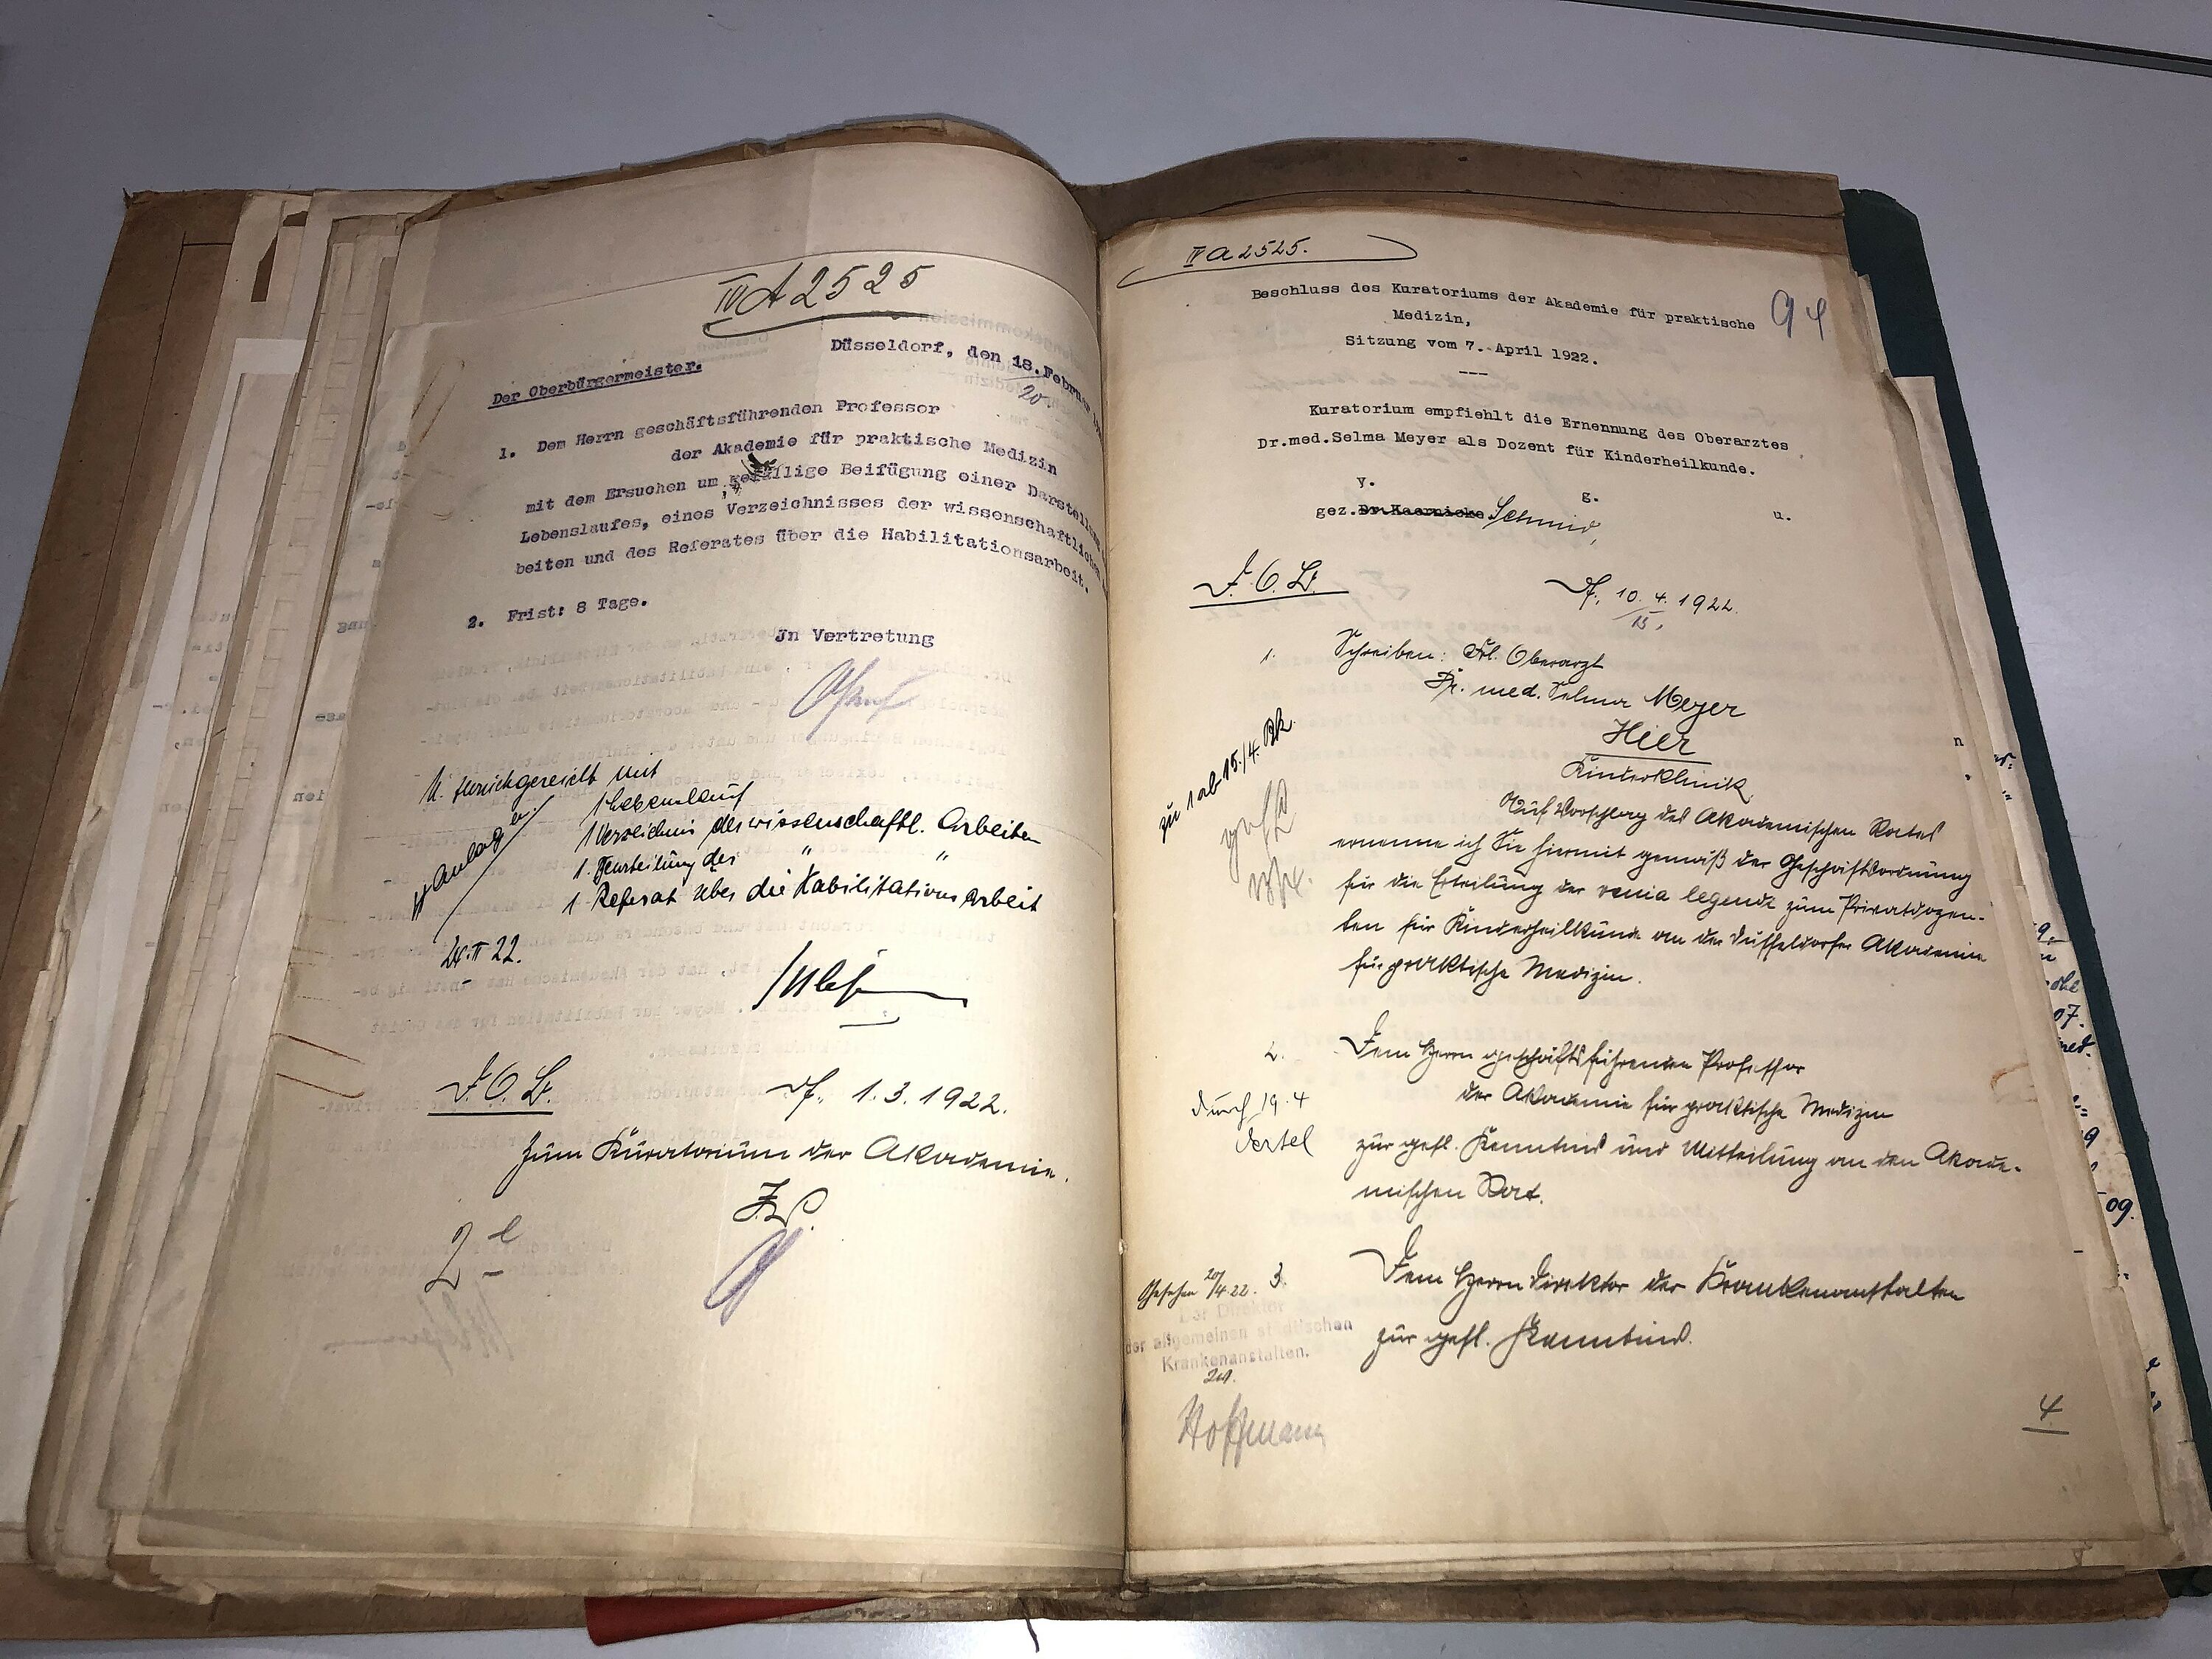 IV A 2525
Düsseldorf, den 18. Februar
20.
Der Oberbürgermeister.
1. Dem Herrn geschäftsführenden Professor
der Akademie für praktische Medizin
mit dem Ersuchen um gefällige Beifügung einer Darstellung
Lebenslaufes, eines Verzeichnisses der wissenschaftlichen
beiten und des Referates über die Habilitationsarbeit.
2. Frist: 8 Tage.
Jn Vertretung
U. zurückgereicht mit
4 Anlagen
1 Lebenslauf
1 Verzeichnis der wissenschaftl. Arbeiten
1 Beurteilung der " "
1 Referat über die Habilitationsarbeit
24. II 22.
D. O. B. Df., 1.3.1922.
Zum Kuratorium der Akademie.
J.V.
IV a 2525.
94
Beschluss des Kuratoriums der Akademie für praktische
Medizin,
Sitzung vom 7. April 1922.
---
Kuratorium empfiehlt die Ernennung des Oberarztes
Dr.med.Selma Meyer als Dozent für Kinderheilkunde.
v. g. u.
gez. Dr.Kaernicke Schmid,
D. O. B. Df., 10.4.1922.
15.
1. Schreiben: Frl. Oberarzt
Dr. med. Selma Meyer
Hier
Kinderklinik
zu 1 ab 15./4. Bk.
Auf Vorschlag des Akademischen Rates
ernenne ich Sie hiermit gemäß der Geschäftsordnung
für die Erteilung der venia legendi zum Privatdozen-
ten für Kinderheilkunde an der Düsseldorfer Akademie
für praktische Medizin.
2. Dem Herrn geschäftsführenden Professor
der Akademie für praktische Medizin
zur gefl. Kenntnis und Mitteilung an den Akade-
mischen Rat.
durch 19.4
Oertel
3. Dem Herrn Direktor der Krankenanstalten
zur gefl. Kenntnis.
Gesehen 20/4.22.
Der Direktor
der allgemeinen städtischen
Krankenanstalten.
Hoffmann
4